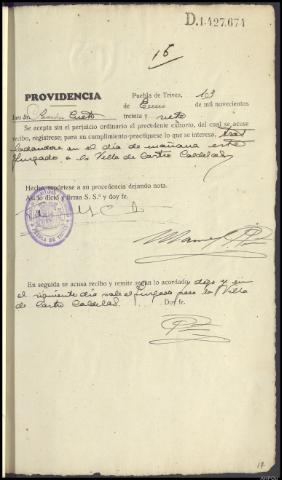 D.1.427.674
16
PROVIDENCIA
Puebla de Trives, 13
de Enero de mil novecientos
treinta y siete
Juez Sr. Cueto
Se acepta sin el perjuicio ordinario el precedente exhorto, del cual se acuse
recibo, regístrese; para su cumplimiento practíquese lo que se interesa, tras
ladandose en el día de mañana este
Juzgado a la Villa de Castro Caldelas
Hecho, remítese a su procedencia dejando nota.
Así lo dictó y firma S. S.ª y doy fe.
En seguida se acusa recibo y remite según lo acordado; digo y en
el siguiente día sale el Juzgado para la Villa
de Castro Caldelas. Doy fe.
17